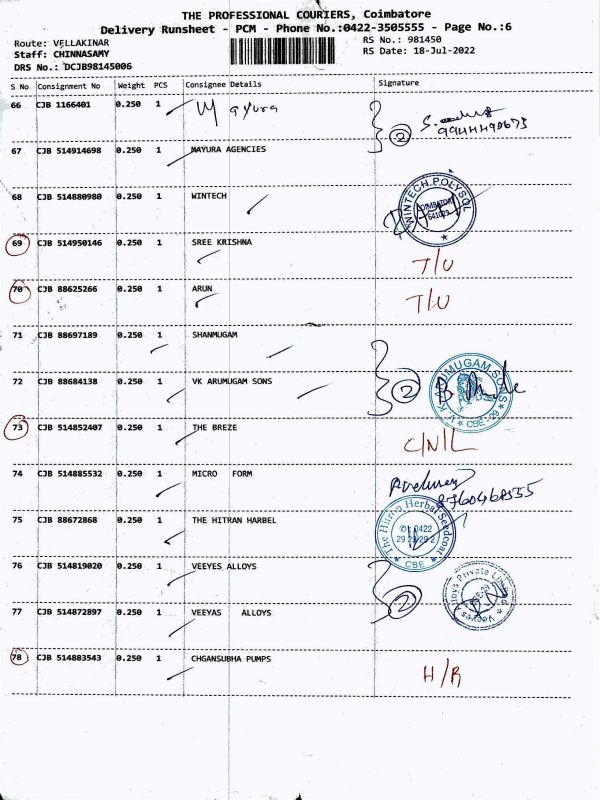 THE PROFESSIONAL COURIERS, Coimbatore
Delivery Runsheet - PCM - Phone No.:0422-3505555 - Page No.:6
Route: VELLAKINAR
RS No.: 981450
Staff: CHINNASAMY
RS Date: 18-Jul-2022
DRS No.: DCJB98145006
S No Consignment No Weight PCS Consignee Details Signature
66 CJB 1166401 0.250 1 Mayura
2
9944490673
67 CJB 514914698 0.250 1 MAYURA AGENCIES
68 CJB 514880980 0.250 1 WINTECH
WINTECH POLYSOL
COIMBATORE
69 CJB 514950146 0.250 1 SREE KRISHNA
T/U
70 CJB 88625266 0.250 1 ARUN
T/U
71 CJB 88697189 0.250 1 SHANMUGAM
72 CJB 88684138 0.250 1 VK ARUMUGAM SONS
2
V.K. ARUMUGAM SONS
CBE-29
73 CJB 514852407 0.250 1 THE BREZE
C/N/L
74 CJB 514885532 0.250 1 MICRO FORM
75 CJB 88672868 0.250 1 THE HITRAN HARBEL
The Hitran Herbal Seedcoat
0422
CBE
76 CJB 514819020 0.250 1 VEEYES ALLOYS
2
Veeyes Alloys Private Limited
77 CJB 514872897 0.250 1 VEEYAS ALLOYS
78 CJB 514883543 0.250 1 CHGANSUBHA PUMPS
H/R